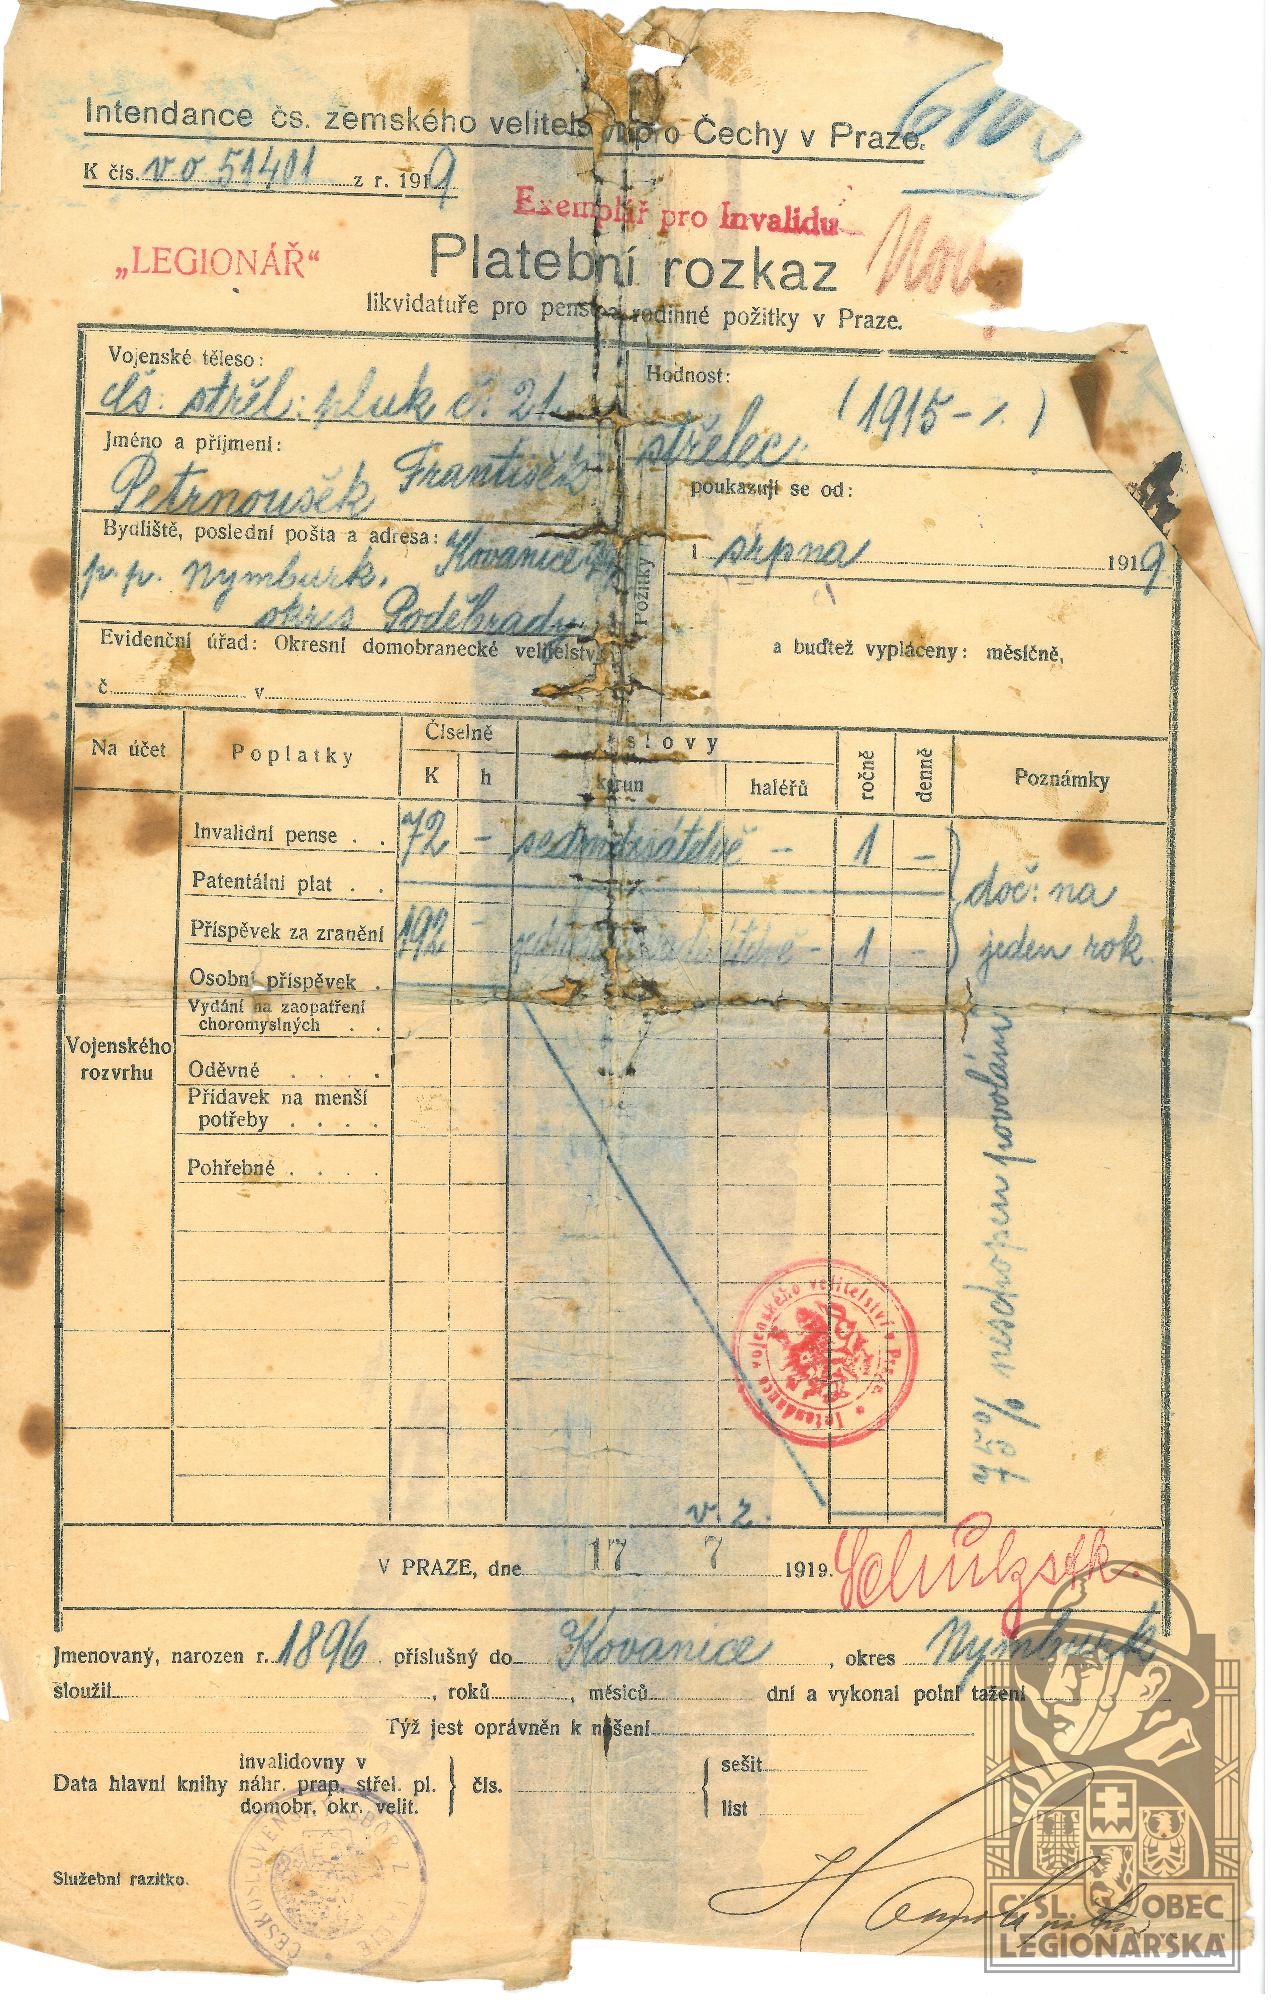 Intendance čs. zemského velitelství pro Čechy v Praze.
K čís. v o 51401 z r. 1919
Exemplář pro Invalidu
„LEGIONÁŘ“
Platební rozkaz
likvidatuře pro pense a rodinné požitky v Praze.
Vojenské těleso:
čs. střel. pluk č. 21
Hodnost:
střelec (1915-/.)
Jméno a příjmení:
Petrnoušek František
Bydliště, poslední pošta a adresa: Kovanice
p. p. Nymburk,
okres Poděbrady
Požitky
poukazují se od:
1 srpna 1919
a buďtež vypláceny: měsíčně,
Evidenční úřad: Okresní domobranecké velitelství
č. v
Na účet
Poplatky
Číselně
K h
slovy
korun haléřů
ročně
denně
Poznámky
Invalidní pense . . 72 - sedmdesátdvě - 1 -
Patentální plat . .
doč: na
Příspěvek za zranění 192 - - 1 -
jeden rok
Osobní příspěvek .
Vydání na zaopatření
choromyslných . .
Vojenského
rozvrhu
Oděvné . . . .
Přídavek na menší
potřeby . . . .
Pohřebné . . . .
75% neschopen povolání
Intendance vojenského velitelství v Praze
v. z.
V PRAZE, dne 17 7 1919.
Jmenovaný, narozen r. 1896 příslušný do Kovanice, okres Nymburk
sloužil , roků , měsíců dní a vykonal polní tažení
Týž jest oprávněn k nošení
Data hlavní knihy
invalidovny v
náhr. prap. střel. pl.
domobr. okr. velit.
čís.
sešit
list
Služební razítko.
ČSL. OBEC
LEGIONÁŘSKÁ